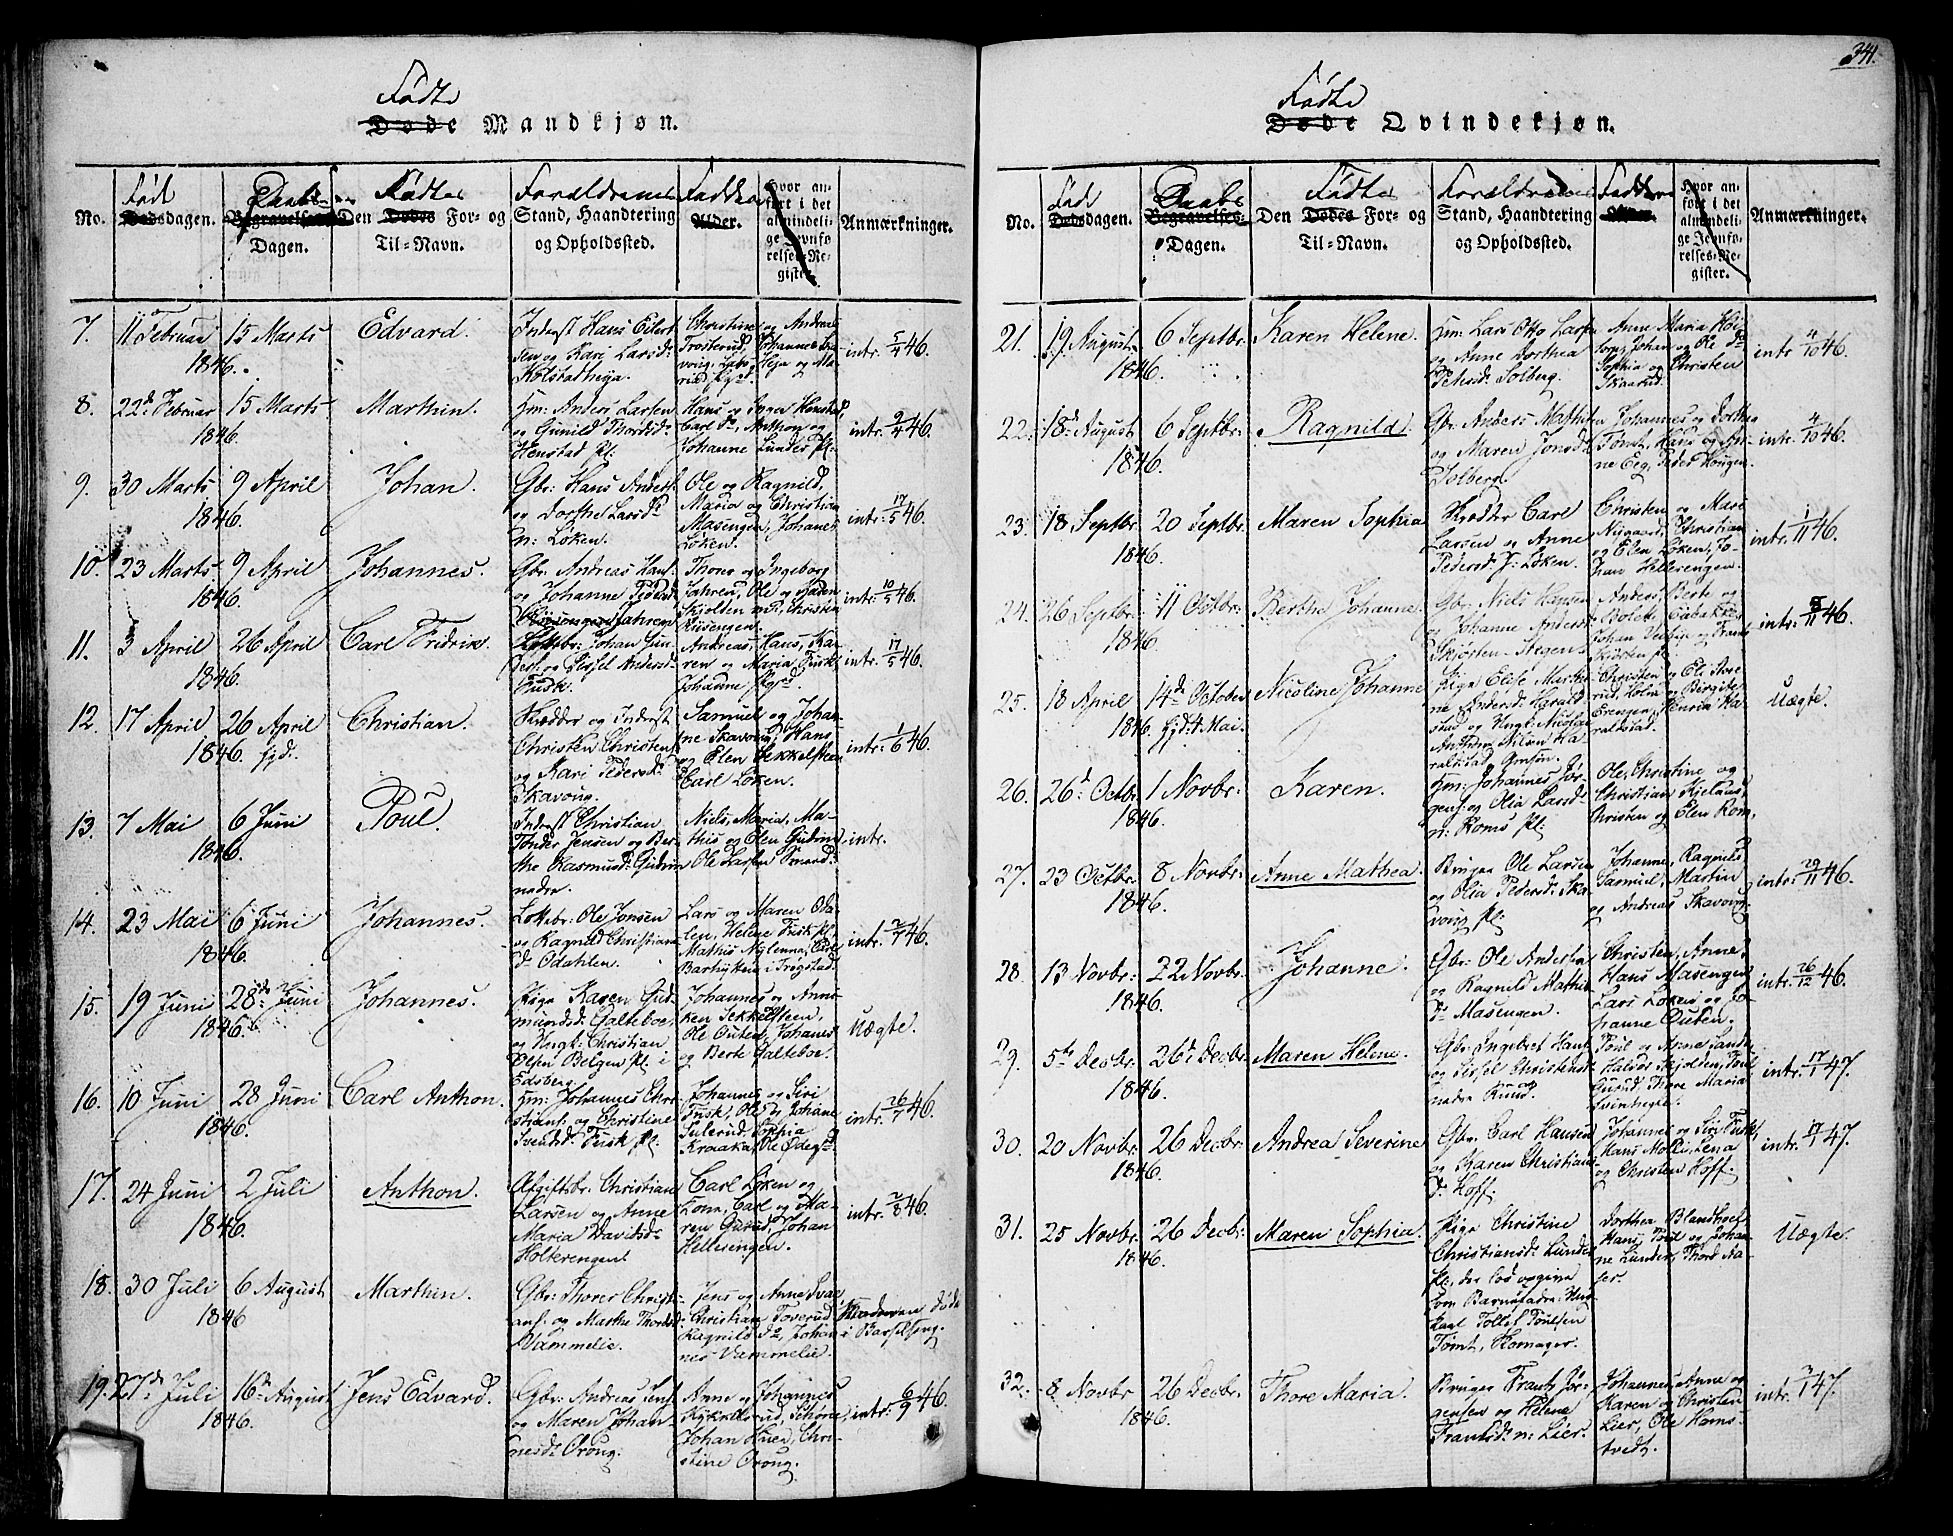 341.
Fødte
Døde Mandkjøn.
No.
Fød
Dødsdagen.
Daabs
Begravelses-
Dagen.
Fødtes
Den Dødes For- og
Til-Navn.
Forældrenes
Stand, Haandtering
og Opholdssted.
Faddere
Alder.
Hvor an-
ført i det
almindeli-
ge Jevnfø-
relses-Re-
gister.
Anmærkninger.
7. 11 Februar 1846. 15 Marts Edvard.
Inderst Hans Eilert-
sen og Kari Larsd.
Kolstadhøya.
Christine og Andrea
Trosterud, Johannes
intr. 5/4 46.
8. 22de Februar 1846. 15 Marts Marthin.
Hm: Anders Larsen
og Gunild Thordsd.
Henstad pl:
Hans og Inger Henstad,
Carl do, Anthon og
Johanne Lunder pl:
intr. 9/4 46.
9. 30 Marts 1846. 9 April Johan.
Gbr: Hans Anders.
og Dorthe Larsd.
n: Løken.
Ole og Ragnild,
Maria og Christian
Masengen, Johannes
Løken.
intr. 17/5 46.
10. 23 Marts 1846. 9 April Johannes.
Gbr. Andreas Hans.
og Johanne Pedersd.
Jahren
Thore og Ingeborg
Jahren, Ole og Karen
Skjølden, Christen
Riisengen.
intr. 10/5 46.
11. 3 April 1846. 26 April Carl Fridrik.
Johan
og Sissel Andersd.
Tusk.
Andreas, Hans, Ka-
ren og Maria Tusk.
Johanne
intr. 17/5 46.
12. 17 April 1846. 26 April hjd. Christian.
Skrædder og Inderst
Christen Christens.
og Kari Pedersd.
Skavong.
Samuel og Johan-
ne Skavong, Hans
og Elen Sekkelsteen
Carl Løken.
intr. 1/6 46.
13. 7 Mai 1846. 6 Juni Poul.
Inderst Christian
Tønder Jensen og Ber-
the Rasmusd. Gudim
nedre.
Niels, Maria, Ma-
this og Elen Gudim
Ole Larsen
intr.
14. 23 Mai 1846. 6 Juni Johannes.
Ole Jonsen
og Ragnild Christians
d. Odahlen.
Lars og Maren Oda-
len, Helene Tusk pl.
Mathis Nylenna, Carl
i Trøgstad.
intr. 2/7 46.
15. 19 Juni 1846. 28de Juni Johannes.
Pige Karen Gud-
mundsd. Galteboe,
og Ungk: Christian
Olsen Bølgen pl. i
Edsberg.
Johannes og Anne-
ken Sekkelsteen,
Ole Outen, Johannes
og Berte Galteboe.
Uægte.
16. 10 Juni 1846. 28 Juni Carl Anthon.
Hm: Johannes Chri-
stians. og Christine
Svendsd. Tusk pl.
Johannes og Siri
Tusk, Ole og Johanne
Sulerud, Sophia
Kraaka, Ole
intr. 26/7 46.
17. 24 Juni 1846. 2 Juli Anthon.
Afgiftsbr. Christian
Larsen og Anne
Maria Davidsd.
Holterengen.
Carl Løken og
Kona, Carl og Ma-
ren Gurud, Johan
Hellerengen.
intr. 2/8 46.
18. 30 Juli 1846 6 August Marthin.
Gbr. Thorer Christi-
ans. og Marthe Thordsd.
Vammelie.
Jens og Anne
Christian Toverud,
Ragnild do, Johan-
nes Vammelie.
Moderen døde
i Barselseng.
19. 27de Juli 1846. 16de August Jens Edvard.
Gbr. Andreas Jens.
og Maren Johan-
nesd. Orong.
Anne og Johannes
Kykkelsrud,
Johan Huer, Chri-
stine Orong.
intr. 6/9 46.
Fødte
Døde Qvindekjøn.
No.
Fød
Dødsdagen.
Daabs
Begravelses-
Dagen.
Fødtes
Den Dødes For- og
Til-Navn.
Forældrenes
Stand, Haandtering
og Opholdssted.
Faddere
Alder.
Hvor an-
ført i det
almindeli-
ge Jevnfø-
relses-Re-
gister.
Anmærkninger.
21. 19 August 1846. 6 Septbr. Karen Helene.
Hm: Lars Otto Lars.
og Anne Dorthea
Petersd. Solberg.
Anne Maria
Johan og Ole do
Sophia og Christen
Skaarud.
intr. 4/10 46.
22. 18de August 1846. 6 Septbr: Ragnild.
Gbr. Anders Mathis.
og Maren Jonsd.
Solberg.
Johannes og Dorthea
Tømt, Hans og An-
ne Eeg, Peder Hougen.
intr. 4/10 46.
23. 18 Septbr. 1846. 20 Septbr. Maren Sophia.
Skrædder Carl
Larsen og Anne
Pedersd. Løken.
Christen og Mari
Nisgaard, Christian
og Elen Løken, Jo-
han Hellerengen.
intr. 1/11 46.
24. 26 Septbr. 1846. 11 Octobr. Berthe Johanne.
Gbr. Niels Hansen
og Johanne Andersd.
Skjøsten-Stegen.
Anders, Berte og
Bolette
Johan
intr. 8/11 46.
25. 18 April 1846. 14de October hjd. 4 Mai. Nicoline Johanne
Pige Elise Marthi-
ne Andersd. Harald-
stad og Ungk: Nicolai
Anthon Nilsen Ha-
raldstad
Christen og Eli
rud, Helvig og Birgite
Erengen, Henrik Ha-
raldstad.
Uægte.
26. 26de Octbr. 1846. 1 Novbr: Karen.
Hm: Johannes Jør-
gens. og Olia Larsd.
n: Roms pl:
Ole, Christine og
Christian Kjelaas,
Christen og Elen Rom.
27. 23 Octbr. 1846. 8 Novbr. Anne Mathea.
Bruger Ole Larsen
og Olia Pedersd. Ska-
vong pl:
Johanne, Ragnild
Samuel, Martin
og Andreas Skavong
intr: 29/11 46.
28. 13 Novbr: 1846. 22 Novbr. Johanne.
Gbr. Ole Andersen
og Ragnild Mathis-
d. Masengen.
Christen, Anne,
Hans Masengen
Lars Løken og Jo-
hanne Outen.
intr. 26/12 46.
29. 5te Decbr. 1846. 26de Decbr. Maren Helene.
Gbr. Ingebret Hans.
og Sissel Christensd.
nedre Ruud.
Poul og Anne Sande
Halvor Skjolden, Poul
Gurud, Thore Maria
Svindregle.
intr. 17/1 47.
30. 20 Novbr. 1846. 26 Decbr. Andrea Severine
Gbr. Carl Hansen
og Karen Christians
d. Hoff.
Johannes og Siri Tusk,
Hans Molli, Lena
og Christen Hoff.
intr. 17/1 47.
31. 25 Novbr. 1846. 26 Decbr. Maren Sophia.
Pige Christine
Christiansd. Lunder
pl., der lod opgive
som Barnefader: Ung-
karl Tollef Poulsen
Tømt, Homager.
Dorthea Blandkjel
Hans, Poul og Johan-
ne Lunder, Thord Aa-
ser.
Uægte.
32. 8 Novbr 1846. 26 Decbr. Thore Maria.
Bruger Frants Jør-
gensen og Helene
Frantsd. n: Lier.
Johannes, Anne og
Karen og Christen
Lier, Ole Hams-
tvedt.
intr. 7/1 47.